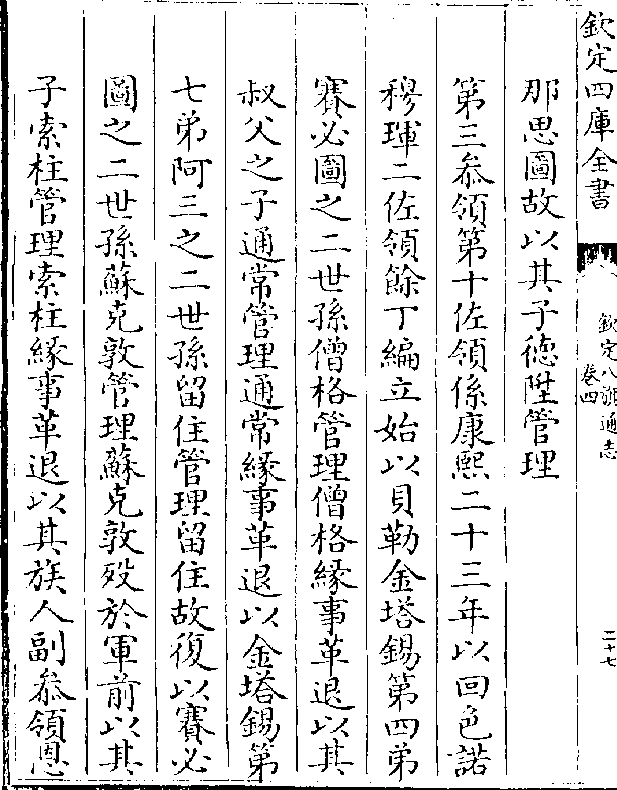 欽定四庫全書
欽定八旗通志
卷四
二十七
那思圖故以其子德陞管理
第三叅領第十佐領係康熙二十三年以回色諾
穆琿二佐領餘丁編立始以貝勒金塔錫第四弟
賽必圖之二世孫僧格管理僧格緣事革退以其
叔父之子通常管理通常緣事革退以金塔錫第
七弟阿三之二世孫留住管理留住故復以賽必
圖之二世孫蘇克敦管理蘇克敦歿於軍前以其
子索柱管理索柱緣事革退以其族人副叅領恩